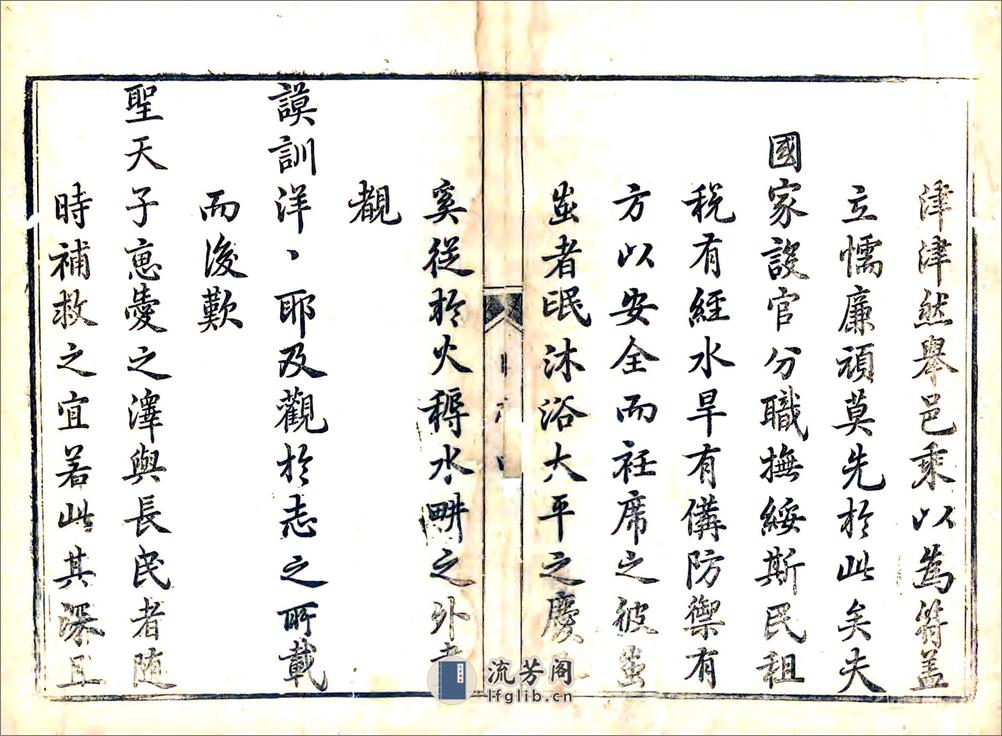 津津然舉邑乘以為符盖
立懦廉頑莫先於此矣夫
國家設官分職撫綏斯民租
稅有經水旱有備防禦有
方以安全而衽席之彼蚩
蚩者氓沐浴太平之慶
奚從於火耨水畊之外
覩
謨訓洋丶耶及觀於志之所載
而後歎
聖天子惠愛之澤與長民者随
時補救之宜若此其深且
流芳阁
lfglib.cn